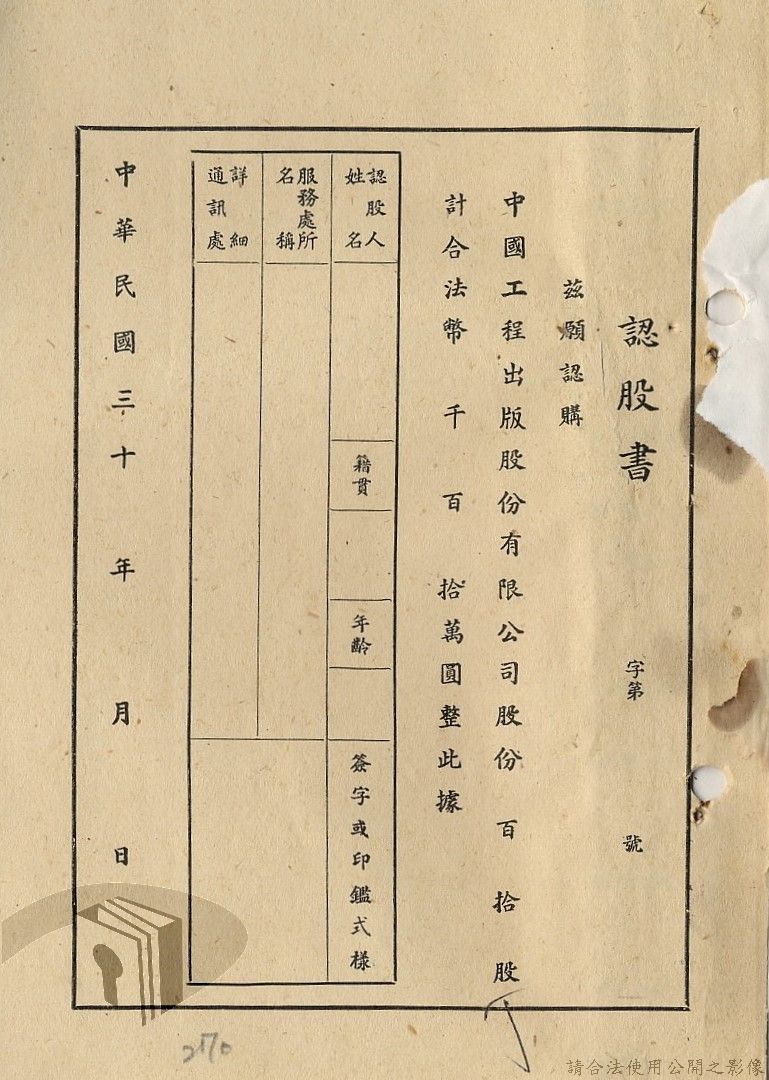 認股書　字第　號
茲願認購
中國工程出版股份有限公司股份　百　拾　股
計合法幣　千　百　拾萬圓整此據
認股人姓名
籍貫
年齡
簽字或印鑑式樣
服務處所名稱
詳細通訊處
中華民國三十　年　月　日
請合法使用公開之影像